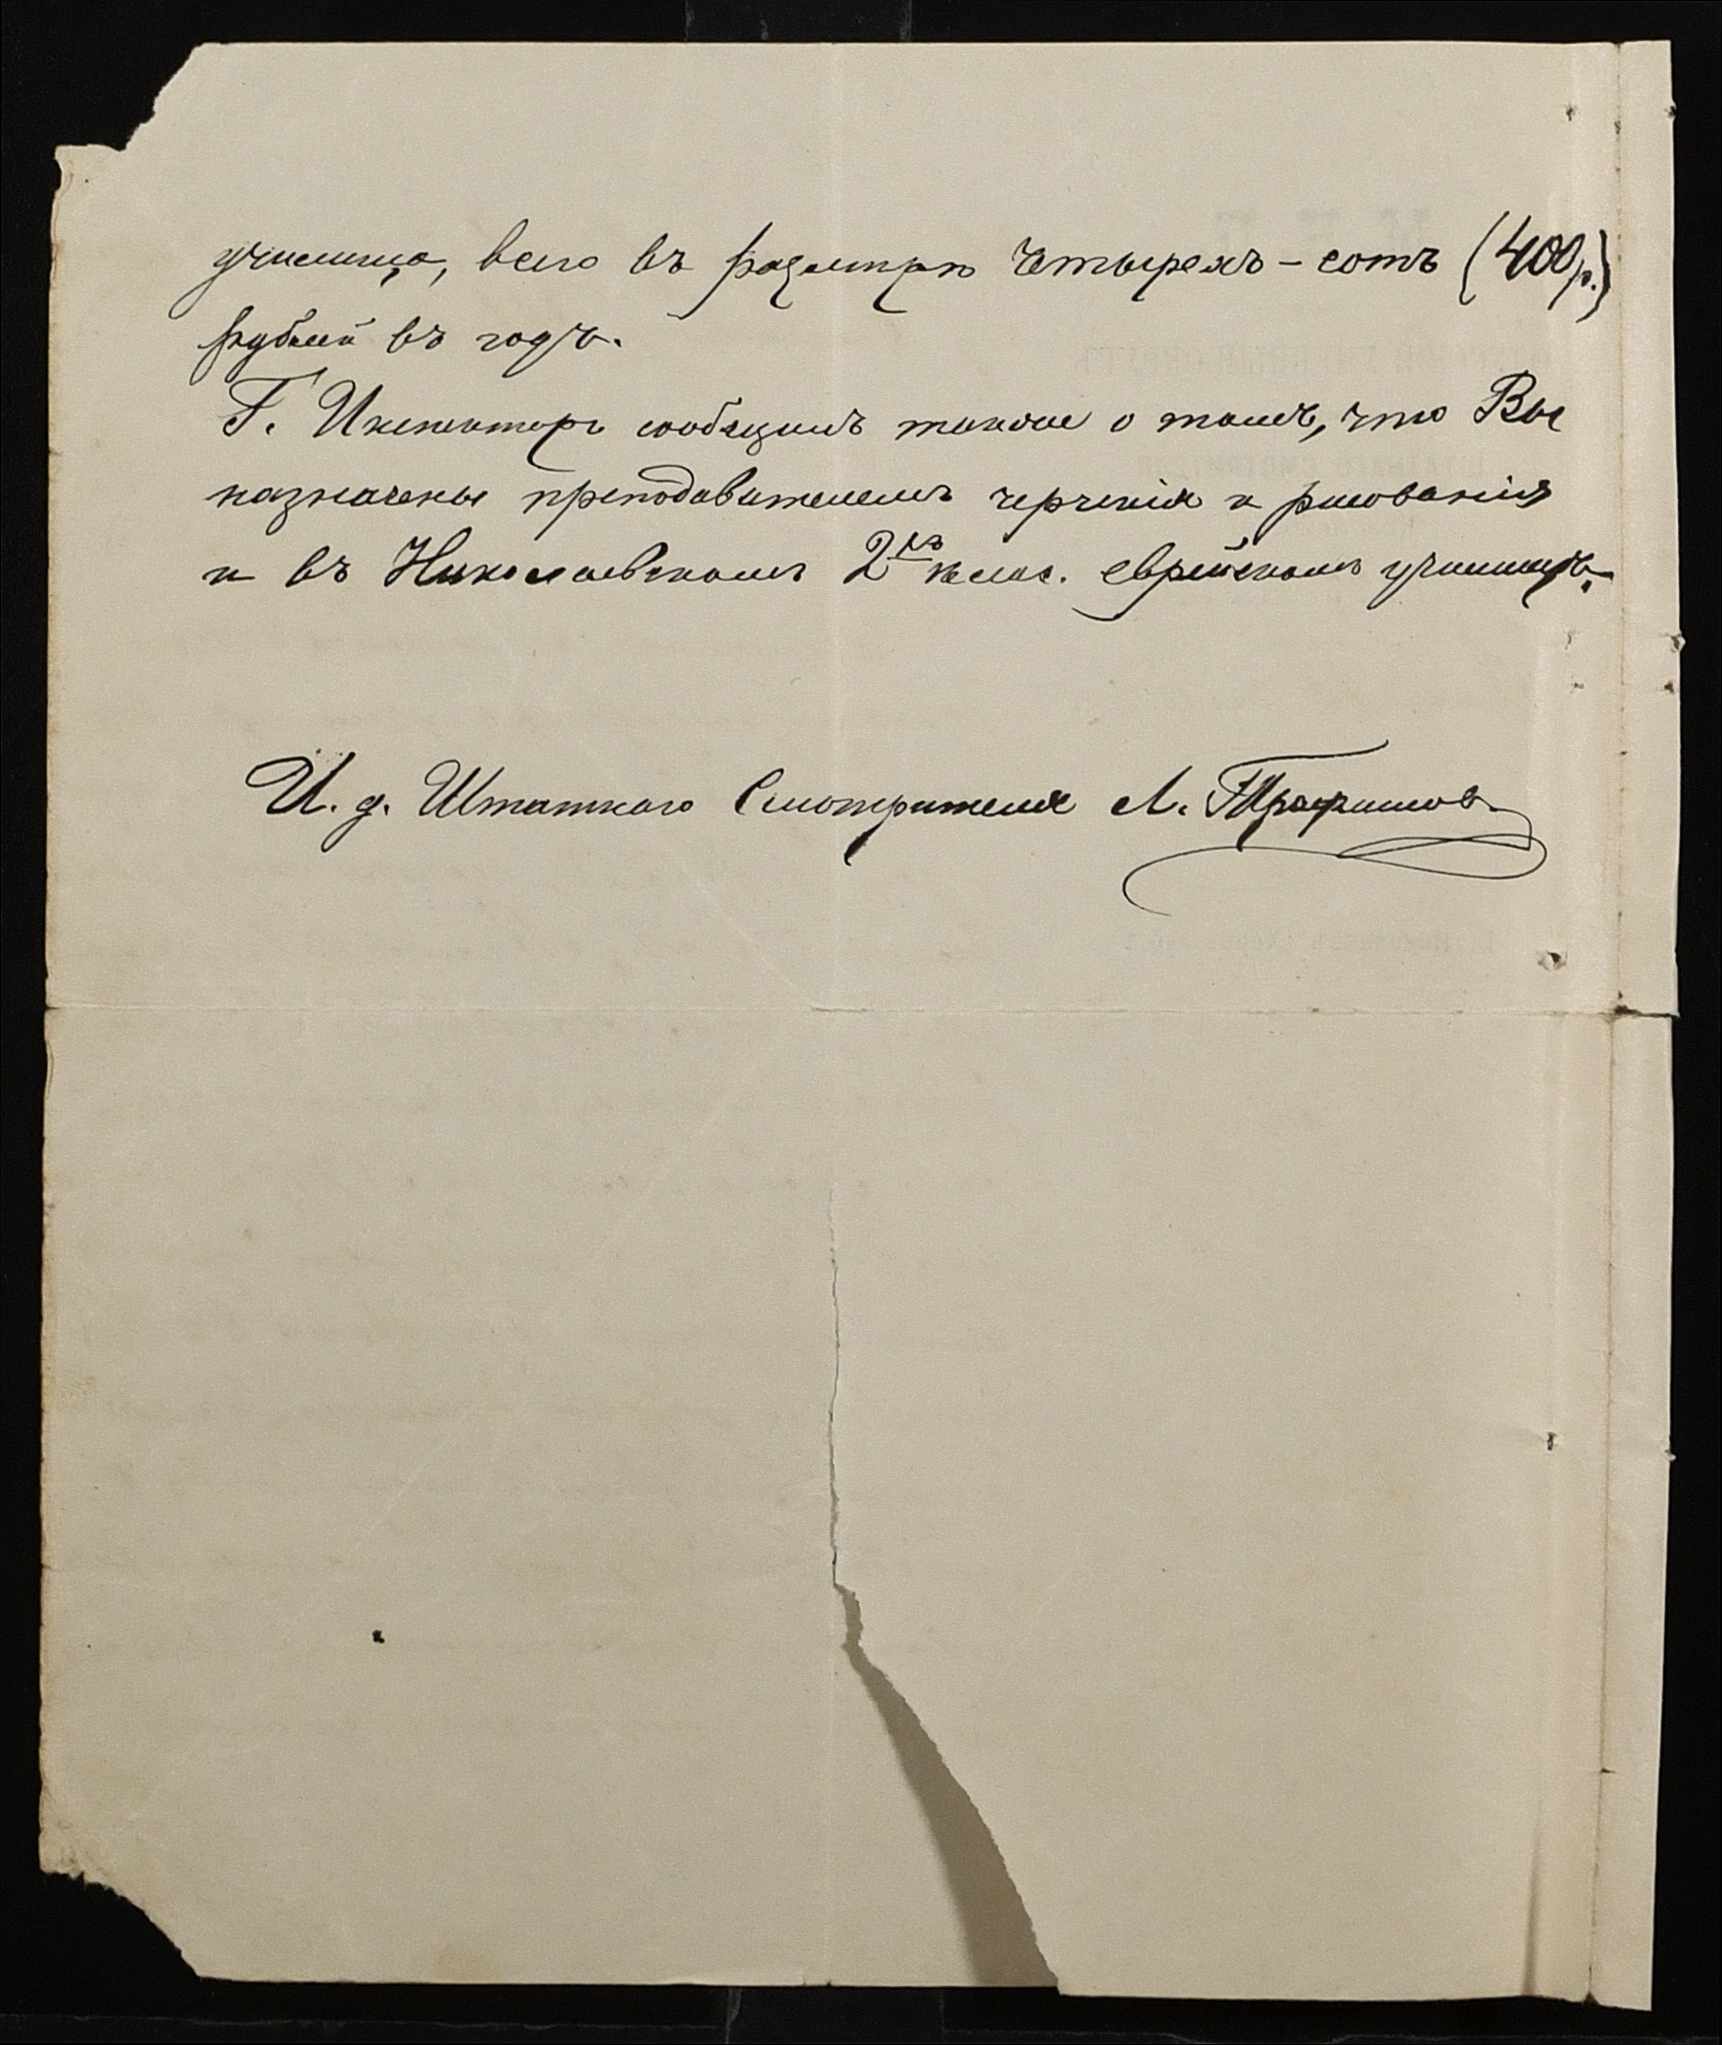 училища, всего въ размѣрѣ четырехъ-сотъ (400р.)
рублей въ годъ.
Г. Инспекторъ сообщилъ также о томъ, что Вы
назначены преподавателемъ черченія и рисованія
и въ Николаевскомъ 2хъ клас. еврейскомъ училищѣ.
И. д. Штатнаго Смотрителя А. Трофимовъ